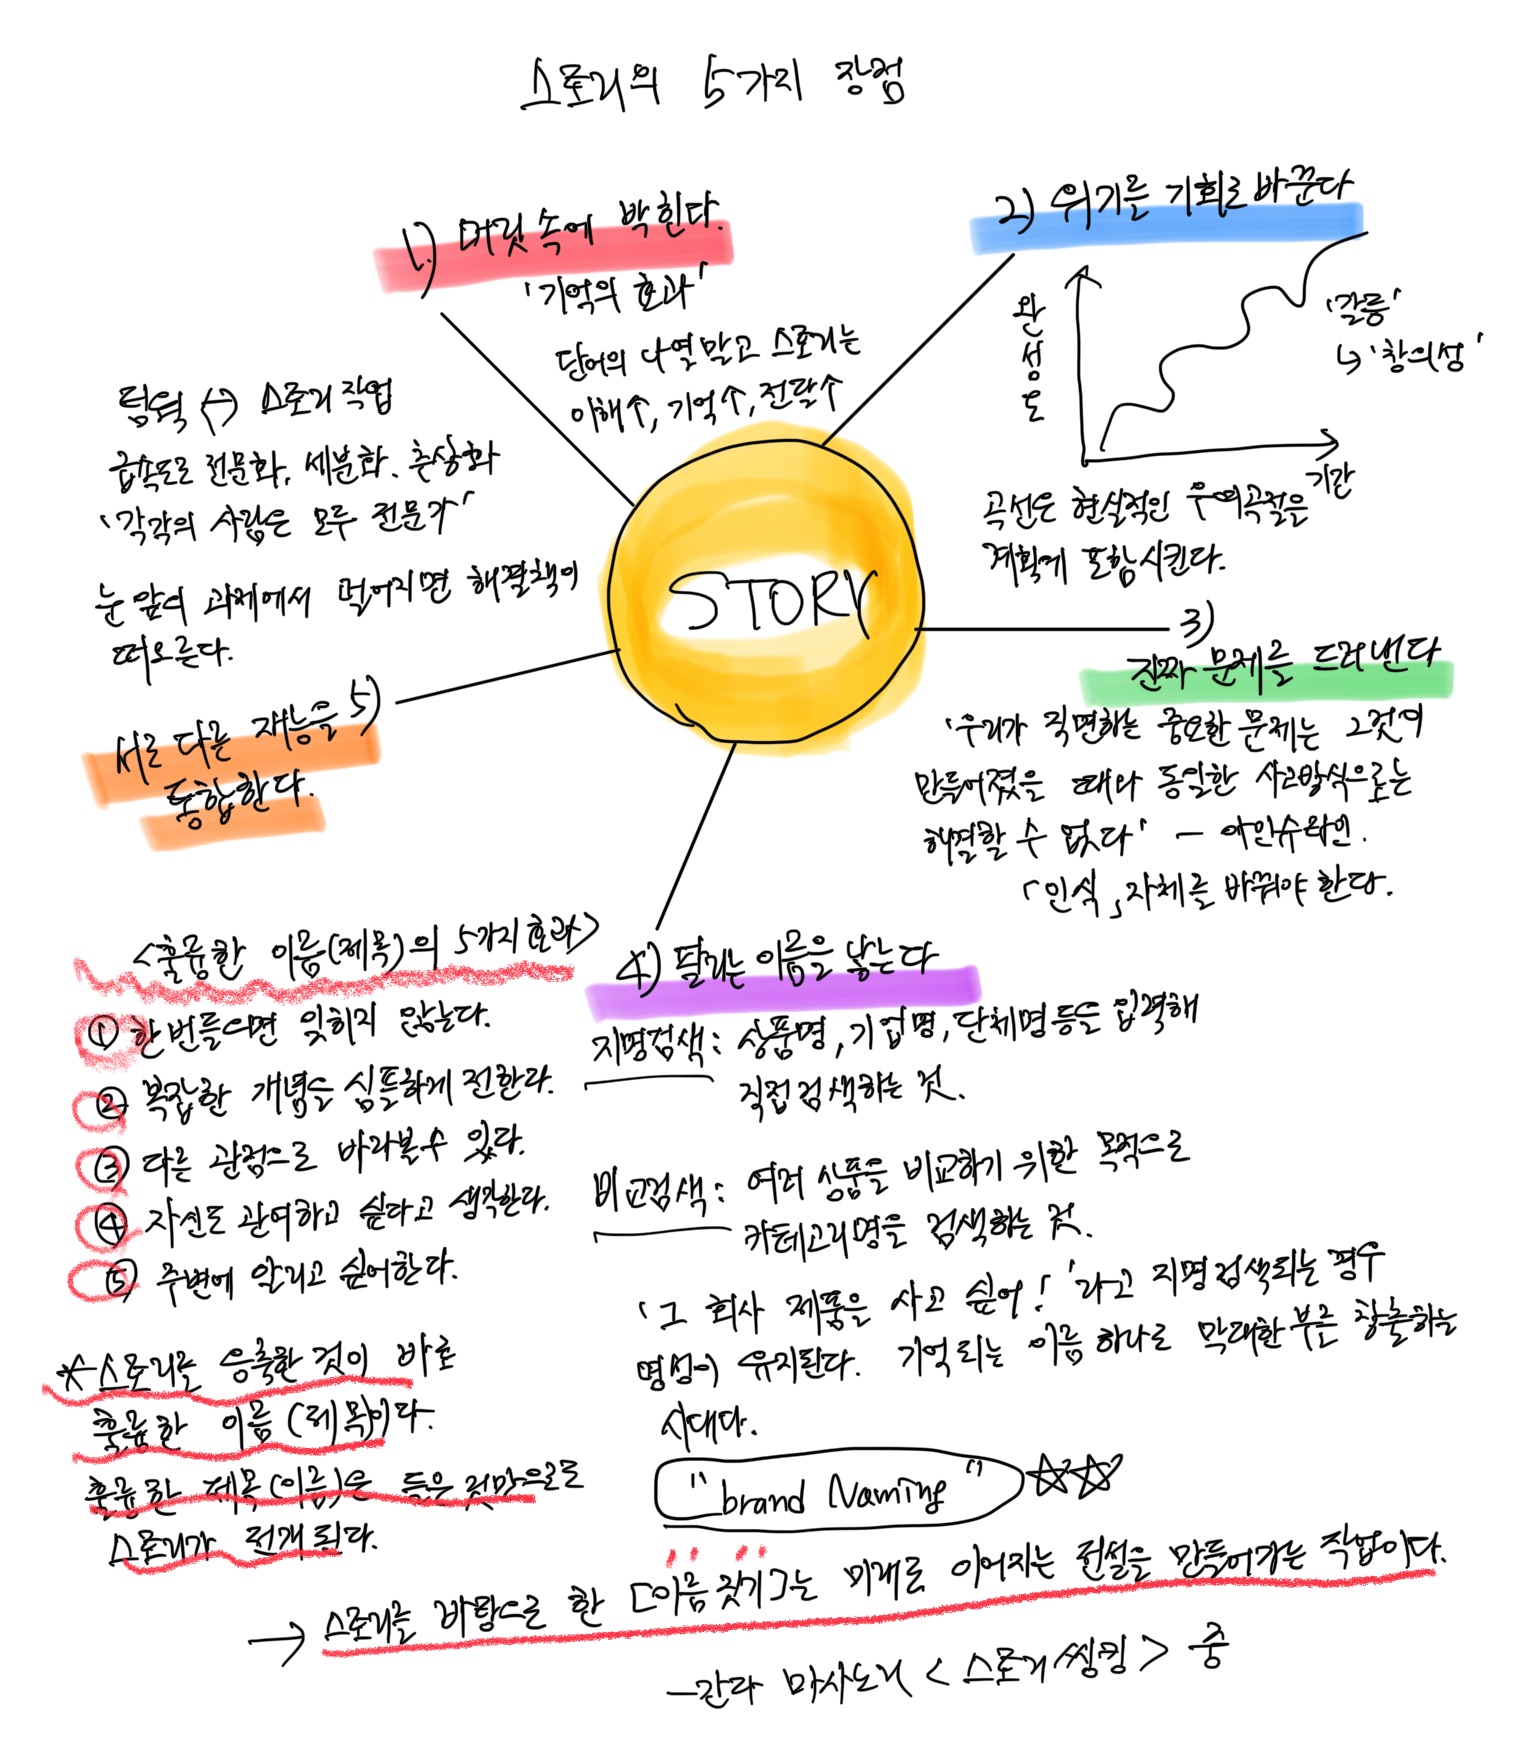 스토리의 5가지 장점
1.) 머릿속에 박힌다.
'기억의 효과'
단어의 나열말고 스토리는
이해↑, 기억↑, 전달↑
2) 위기를 기회로 바꾼다
완성도
'갈등'
↳ '창의성'
기간
곡선은 현실적인 우여곡절을
계획에 포함시킨다.
3)
진짜 문제를 드러낸다
'우리가 직면하는 중요한 문제는 그것이
만들어졌을 때와 동일한 사고방식으로는
해결할 수 없다' - 아인슈타인.
「인식」자체를 바꿔야 한다.
STORY
4) 팔리는 이름을 낳는다
지명검색 : 상품명, 기업명, 단체명 등을 입력해
직접 검색하는 것.
비교검색 : 여러 상품을 비교하기 위한 목적으로
카테고리명을 검색하는 것.
'그 회사 제품을 사고 싶어!'라고 지명검색되는 경우
명성이 유지된다. 기억되는 이름 하나로 막대한 부를 창출하는
시대다.
"brand Naming" ☆☆
팀워크 ↔ 스토리 작업
급속도로 전문화, 세분화. 추상화
'각각의 사람은 모두 전문가'
눈 앞의 과제에서 멀어지면 해결책이
떠오른다.
5)
서로 다른 재능을
통합한다.
<훌륭한 이름(제목)의 5가지 효과>
① 한번 들으면 잊히지 않는다.
② 복잡한 개념을 심플하게 전한다.
③ 다른 관점으로 바라볼 수 있다.
④ 자신도 관여하고 싶다고 생각한다.
⑤ 주변에 알리고 싶어한다.
* 스토리를 응축한 것이 바로
훌륭한 이름(제목)이다.
훌륭한 제목(이름)은 들은 것만으로도
스토리가 전개된다.
→ 스토리를 바탕으로 한 [이름 짓기]는 미래로 이어지는 전설을 만들어가는 작업이다.
- 간다 마사노리 <스토리씽킹> 중